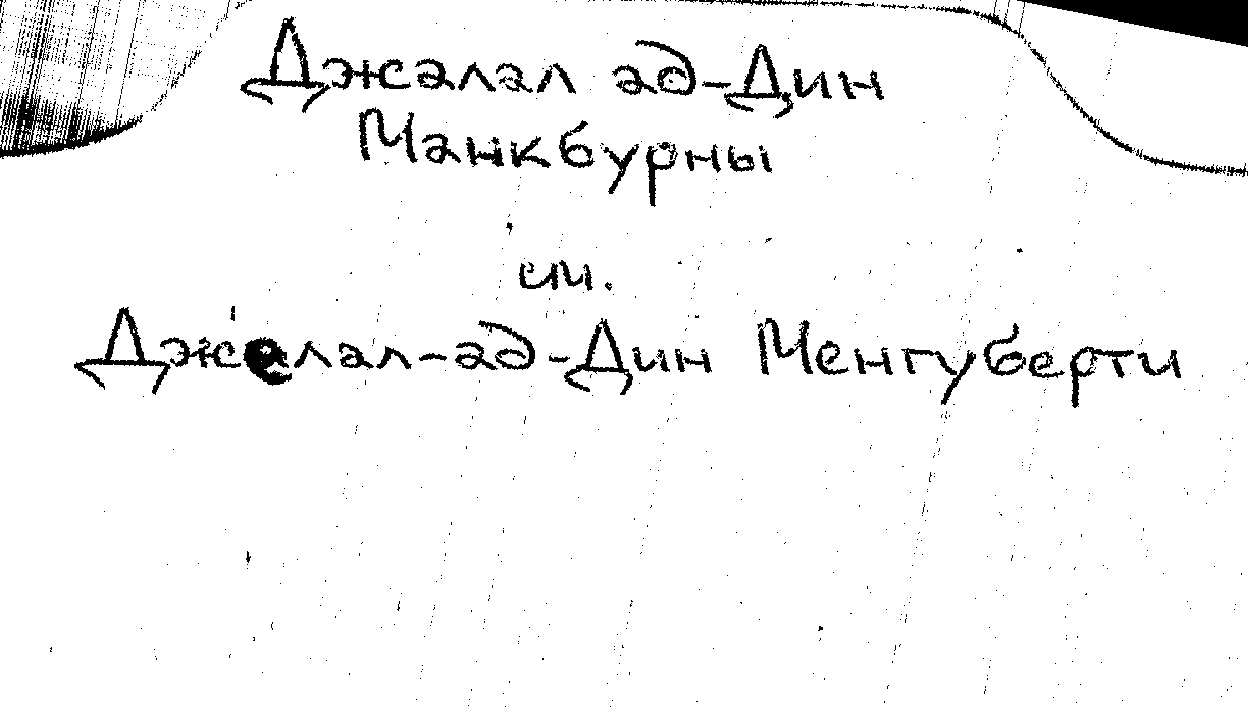 Джалал ад-Дин
Манкбурны
см.
Джалал-ад-Дин Менгуберти